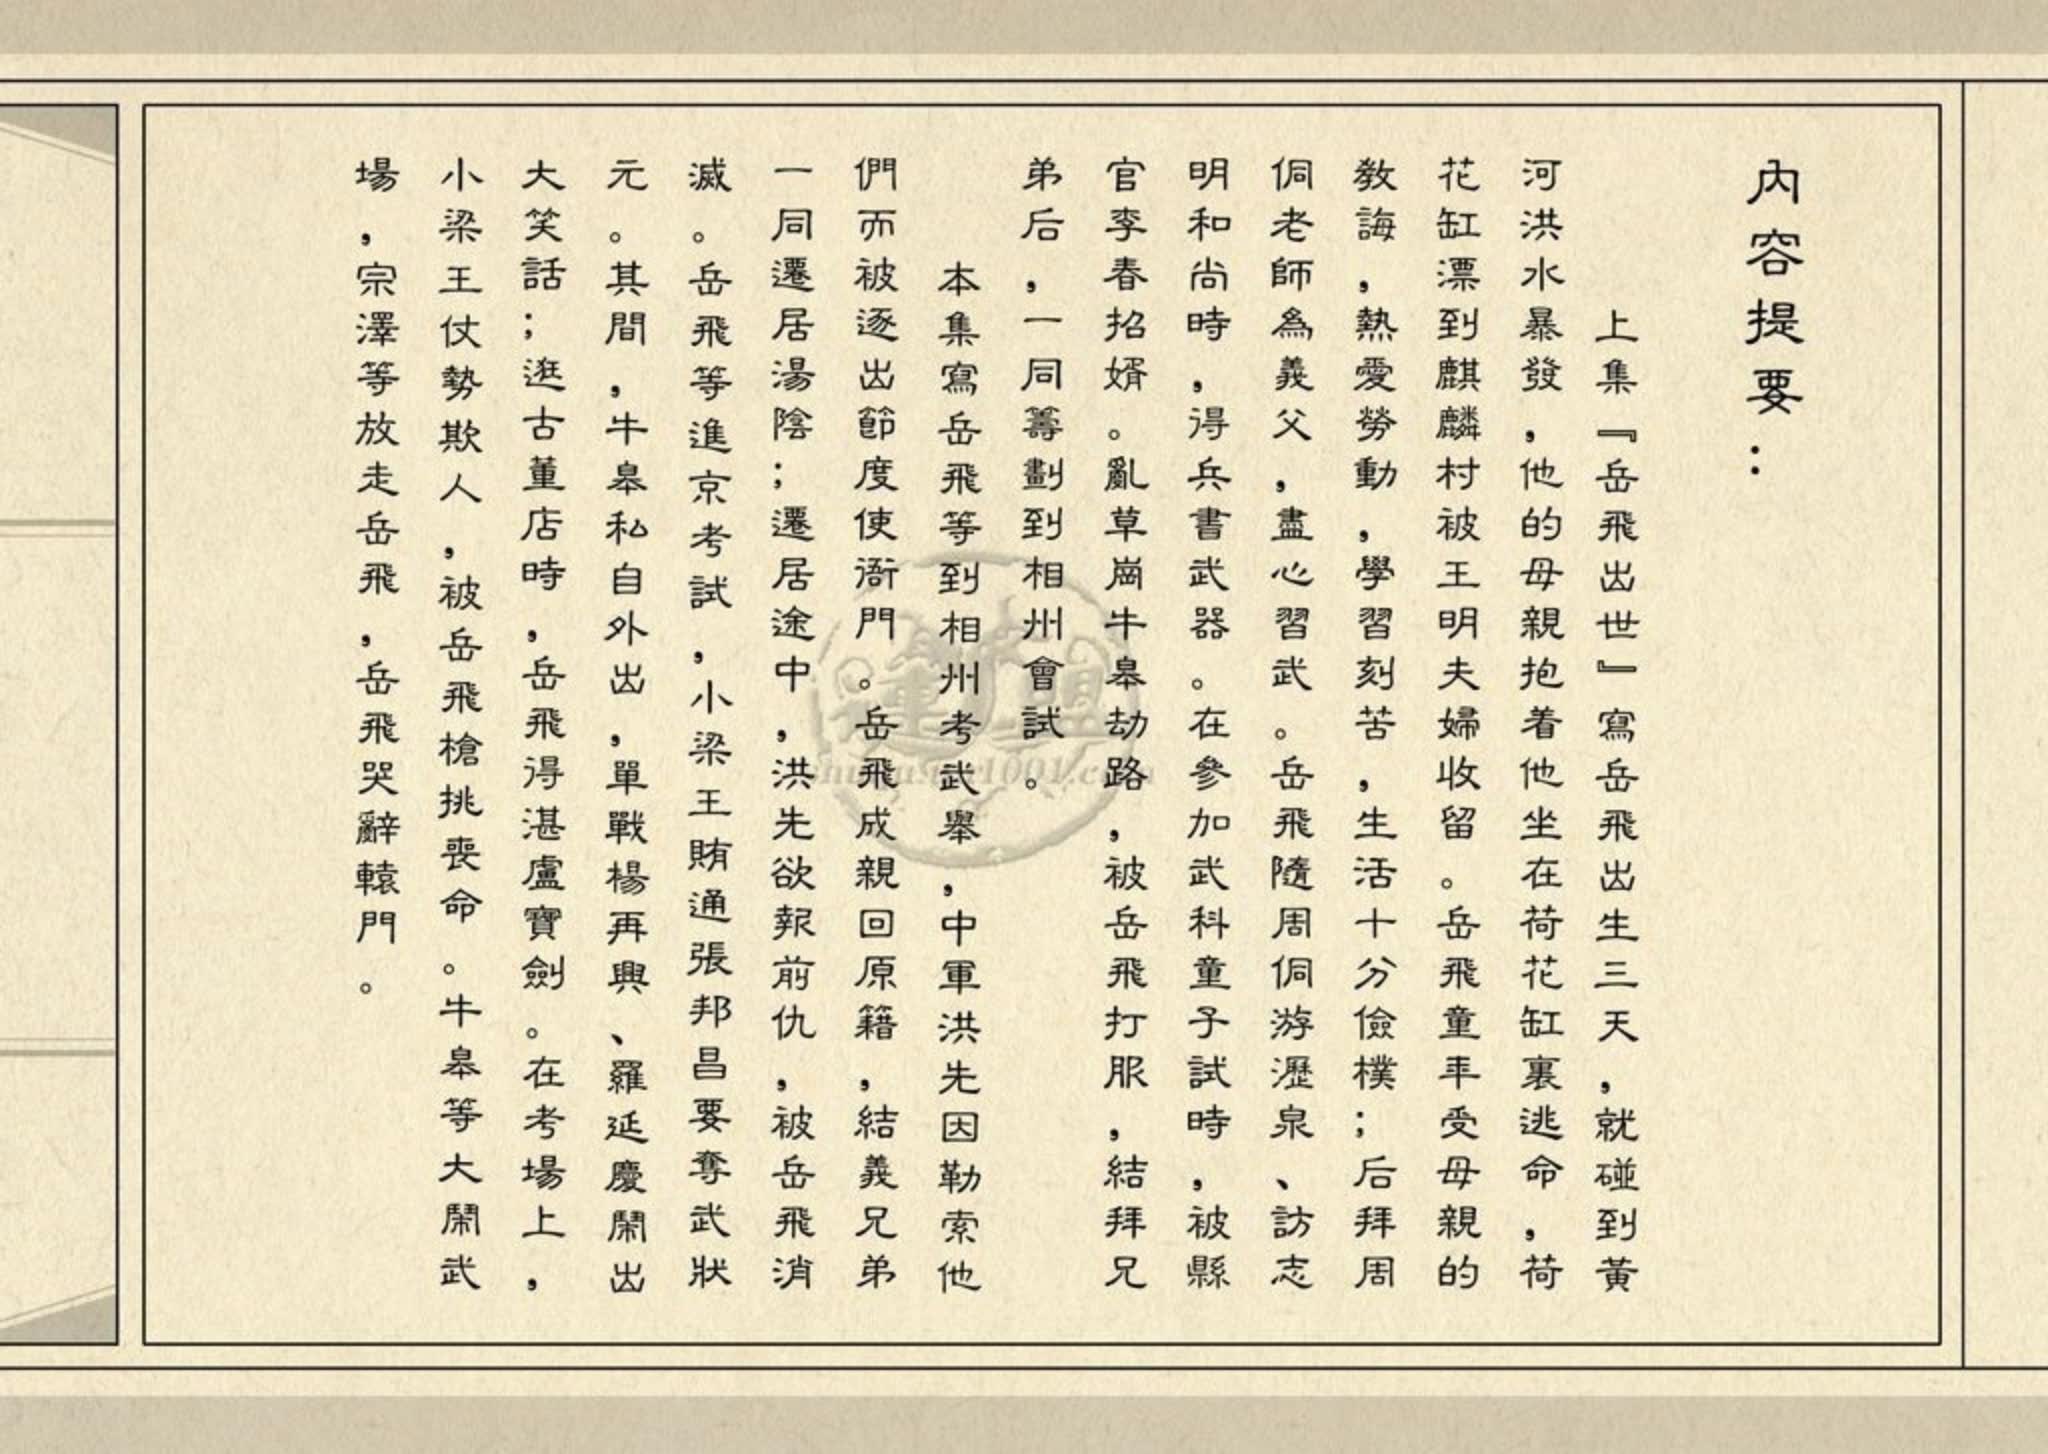 內容提要：
上集『岳飛出世』寫岳飛出生三天，就碰到黃
河洪水暴發，他的母親抱着他坐在荷花缸裏逃命，荷
花缸漂到麒麟村被王明夫婦收留。岳飛童年受母親的
教誨，熱愛勞動，學習刻苦，生活十分儉樸；后拜周
侗老師為義父，盡心習武。岳飛隨周侗游瀝泉、訪志
明和尚時，得兵書武器。在參加武科童子試時，被縣
官李春招婿。亂草崗牛皋劫路，被岳飛打服，結拜兄
弟后，一同籌劃到相州會試。
本集寫岳飛等到相州考武舉，中軍洪先因勒索他
們而被逐出節度使衙門。岳飛成親回原籍，結義兄弟
一同遷居湯陰；遷居途中，洪先欲報前仇，被岳飛消
滅。岳飛等進京考試，小梁王賄通張邦昌要奪武狀
元。其間，牛皋私自外出，單戰楊再興、羅延慶鬧出
大笑話；逛古董店時，岳飛得湛盧寶劍。在考場上，
小梁王仗勢欺人，被岳飛槍挑喪命。牛皋等大鬧武
場，宗澤等放走岳飛，岳飛哭辭轅門。